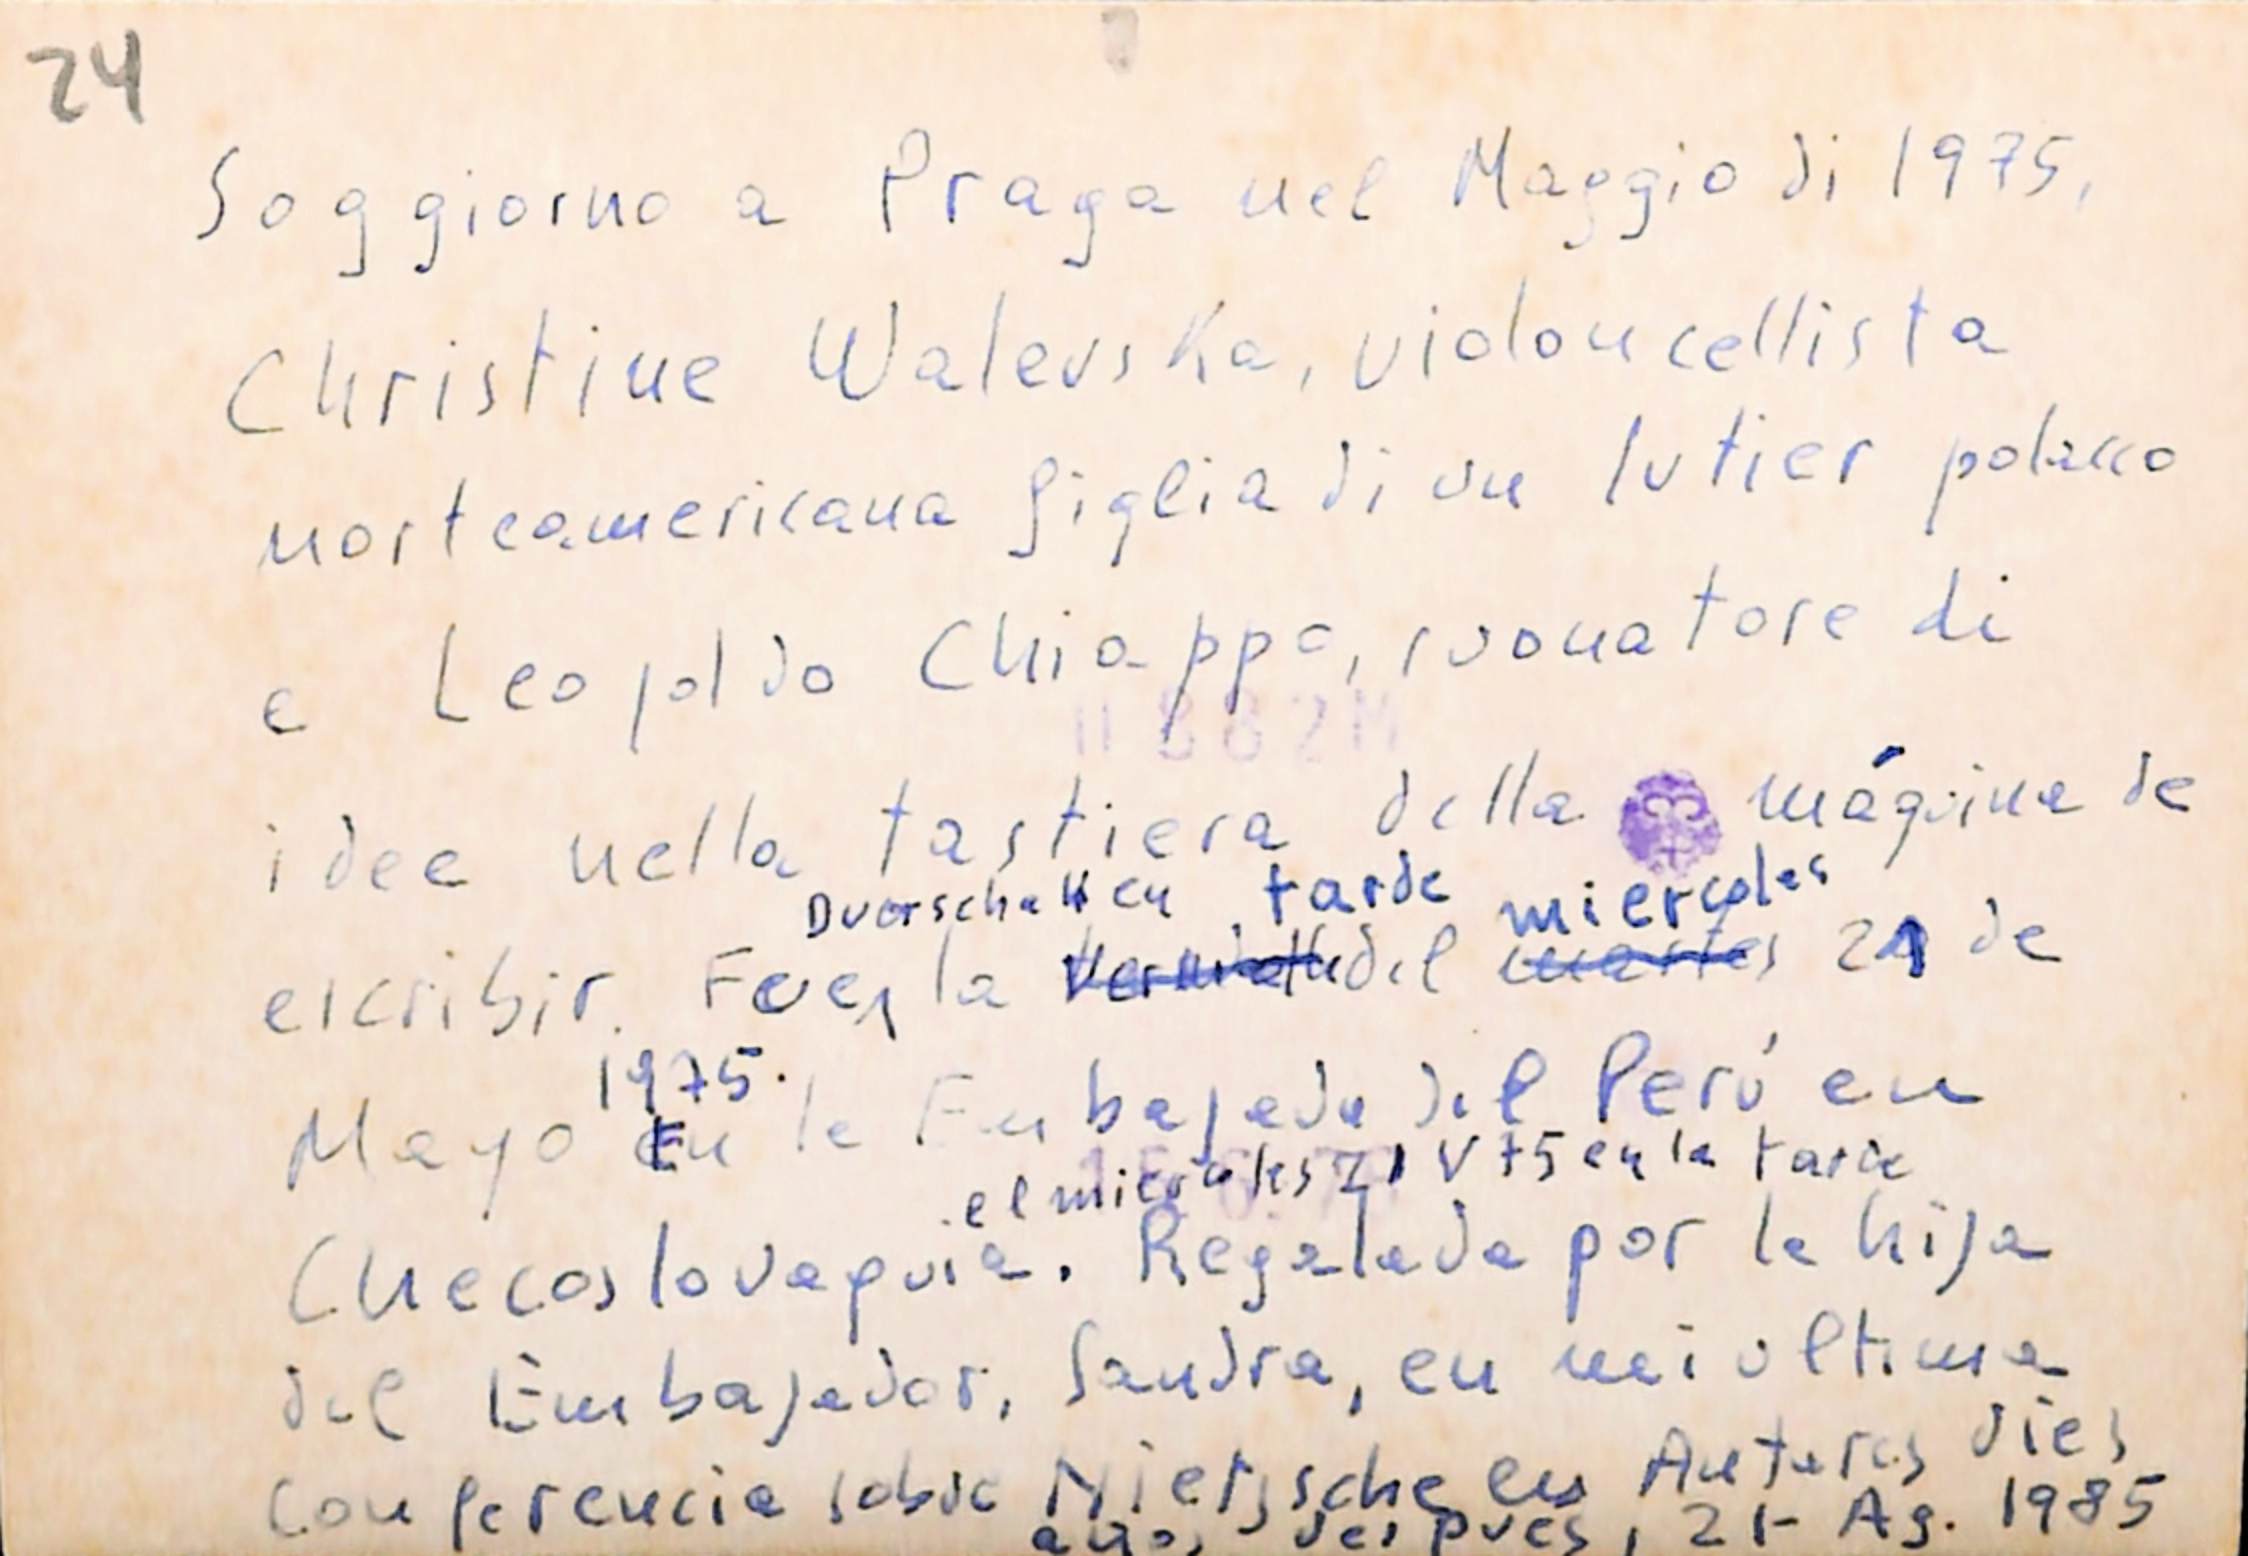 24
Soggiorno a Praga nel Maggio di 1975,
Christine Walevska, violoncellista
norteamericana figlia di un lutier polacco
e Leopoldo Chiappo, suonatore di
idee nella tastiera della máquina de
Dvorschak en tarde miercoles
escribir. Fue en la del martes 21 de
1975.
Mayo En la Embajada del Perú en
el miercoles 21 V 75 en la tarde
Checoslovaquia. Regalada por la hija
del Embajador, Sandra, en mi ultima
conferencia sobre Nietzsche en Antares dies
años después, 21- Ag. 1985